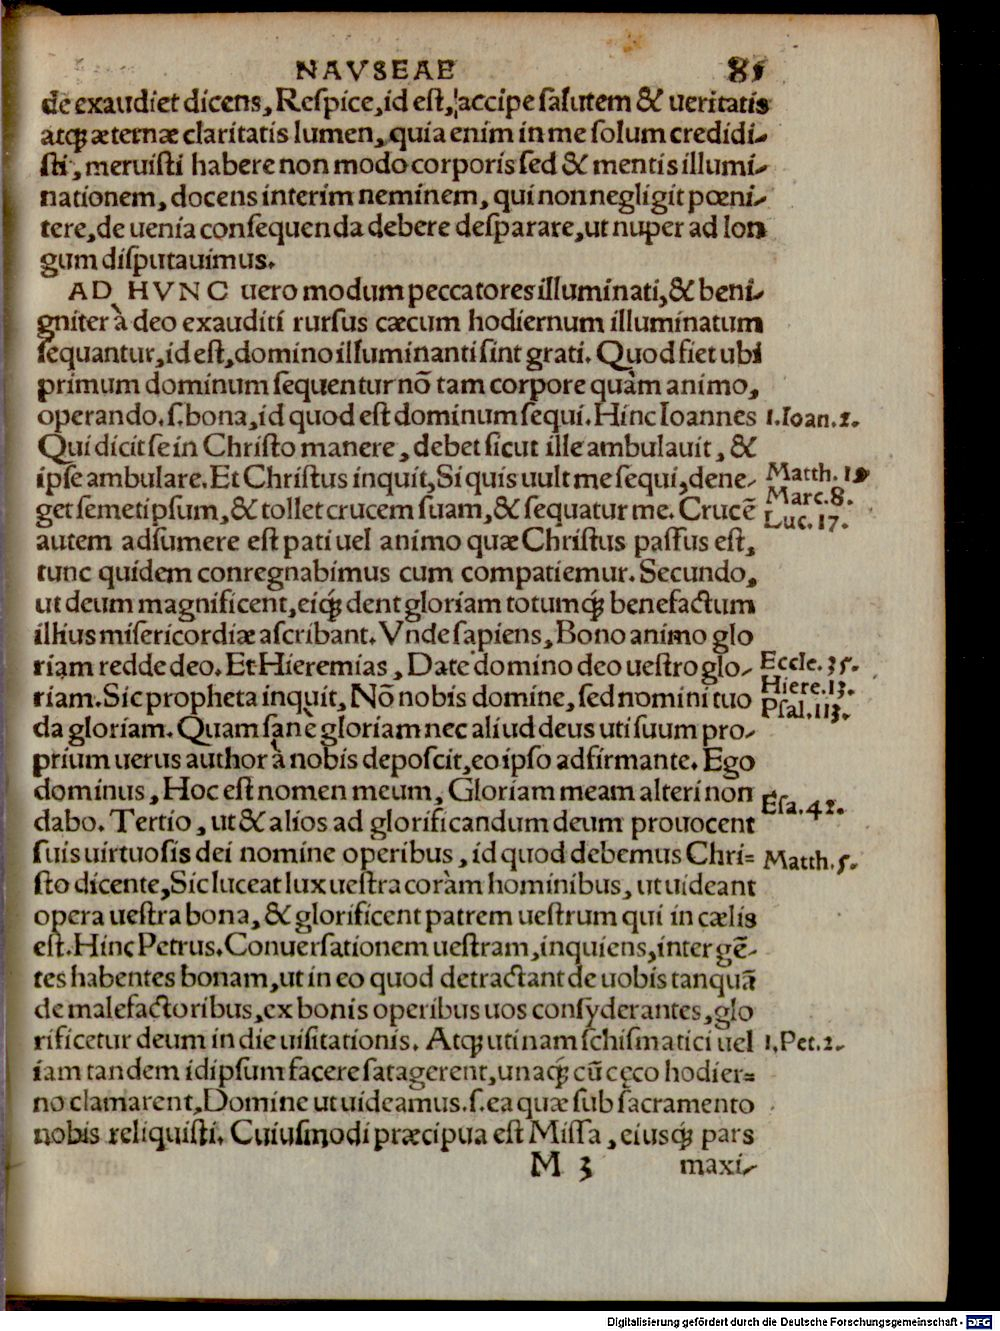 NAVSEAE 85
de exaudiet dicens, Reſpice, id eſt, accipe ſalutem & ueritatis
atq́; æternæ claritatis lumen, quia enim in me ſolum credidi-
ſti, meruiſti habere non modo corporis ſed & mentis illumi-
nationem, docens interim neminem, qui non negligit pœni-
tere, de uenia conſequenda debere deſparare, ut nuper ad lon
gum diſputauimus.
AD HVNC uero modum peccatores illuminati, & beni-
gniter à deo exauditi rurſus cæcum hodiernum illuminatum
ſequantur, id eſt, domino illuminanti ſint grati. Quod fiet ubi
primum dominum ſequentur nō tam corpore quàm animo,
operando .ſ. bona, id quod eſt dominum ſequi. Hinc Ioannes 1. Ioan. 2.
Qui dicit ſe in Chriſto manere, debet ſicut ille ambulauit, &
ipſe ambulare. Et Chriſtus inquit, Si quis uult me ſequi, dene- Matth. 19
get ſemetipſum, & tollet crucem ſuam, & ſequatur me. Crucē Marc. 8.
Luc. 17.
autem adſumere eſt pati uel animo quæ Chriſtus paſſus eſt,
tunc quidem conregnabimus cum compatiemur. Secundo,
ut deum magnificent, eiq́; dent gloriam totumq́; benefactum
illius miſericordiæ aſcribant. Vnde ſapiens, Bono animo glo
riam redde deo. Et Hieremias, Date domino deo ueſtro glo- Eccle. 35.
Hiere. 13.
riam. Sic propheta inquit, Nō nobis domine, ſed nomini tuo Pſal. 113.
da gloriam. Quam ſanè gloriam nec aliud deus uti ſuum pro-
prium uerus author à nobis depoſcit, eo ipſo adfirmante. Ego
dominus, Hoc eſt nomen meum, Gloriam meam alteri non Eſa. 42.
dabo. Tertio, ut & alios ad glorificandum deum prouocent
ſuis uirtuoſis dei nomine operibus, id quod debemus Chri= Matth. 5.
ſto dicente, Sic luceat lux ueſtra coràm hominibus, ut uideant
opera ueſtra bona, & glorificent patrem ueſtrum qui in cælis
eſt. Hinc Petrus. Conuerſationem ueſtram, inquiens, inter gē-
tes habentes bonam, ut in eo quod detractant de uobis tanquā
de malefactoribus, ex bonis operibus uos conſyderantes, glo
rificetur deum in die uiſitationis. Atq; utinam ſchiſmatici uel 1. Pet. 2.
iam tandem idipſum facere ſatagerent, unaq́; cū cęco hodier=
no clamarent, Domine ut uideamus .ſ. ea quæ ſub ſacramento
nobis reliquiſti. Cuiuſmodi præcipua eſt Miſſa, eiusq́; pars
M 3 maxi-
Digitalisierung gefördert durch die Deutsche Forschungsgemeinschaft - DFG